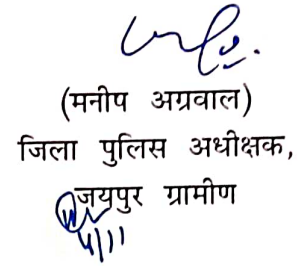 (मनीष अग्रवाल)
जिला पुलिस अधीक्षक,
जयपुर ग्रामीण
4/11